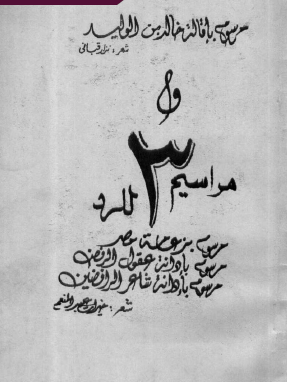 مرسوم بإقالة خالد بن الوليد
شعر: نزار قباني
و
٣ مراسيم للرد
مرسوم بزعامة مصر
مرسوم بإدانة عقول الرفض
مرسوم بإدانة شاعر الرافضين
شعر: عبد المنعم